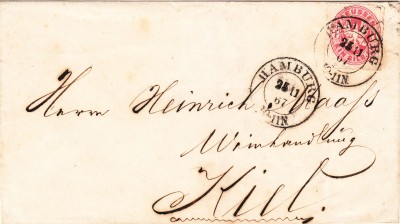 HAMBURG
25 11
67
HAMBURG
25 11
67
Herrn Heinrich Haass
Weinhandlung
Kiel.